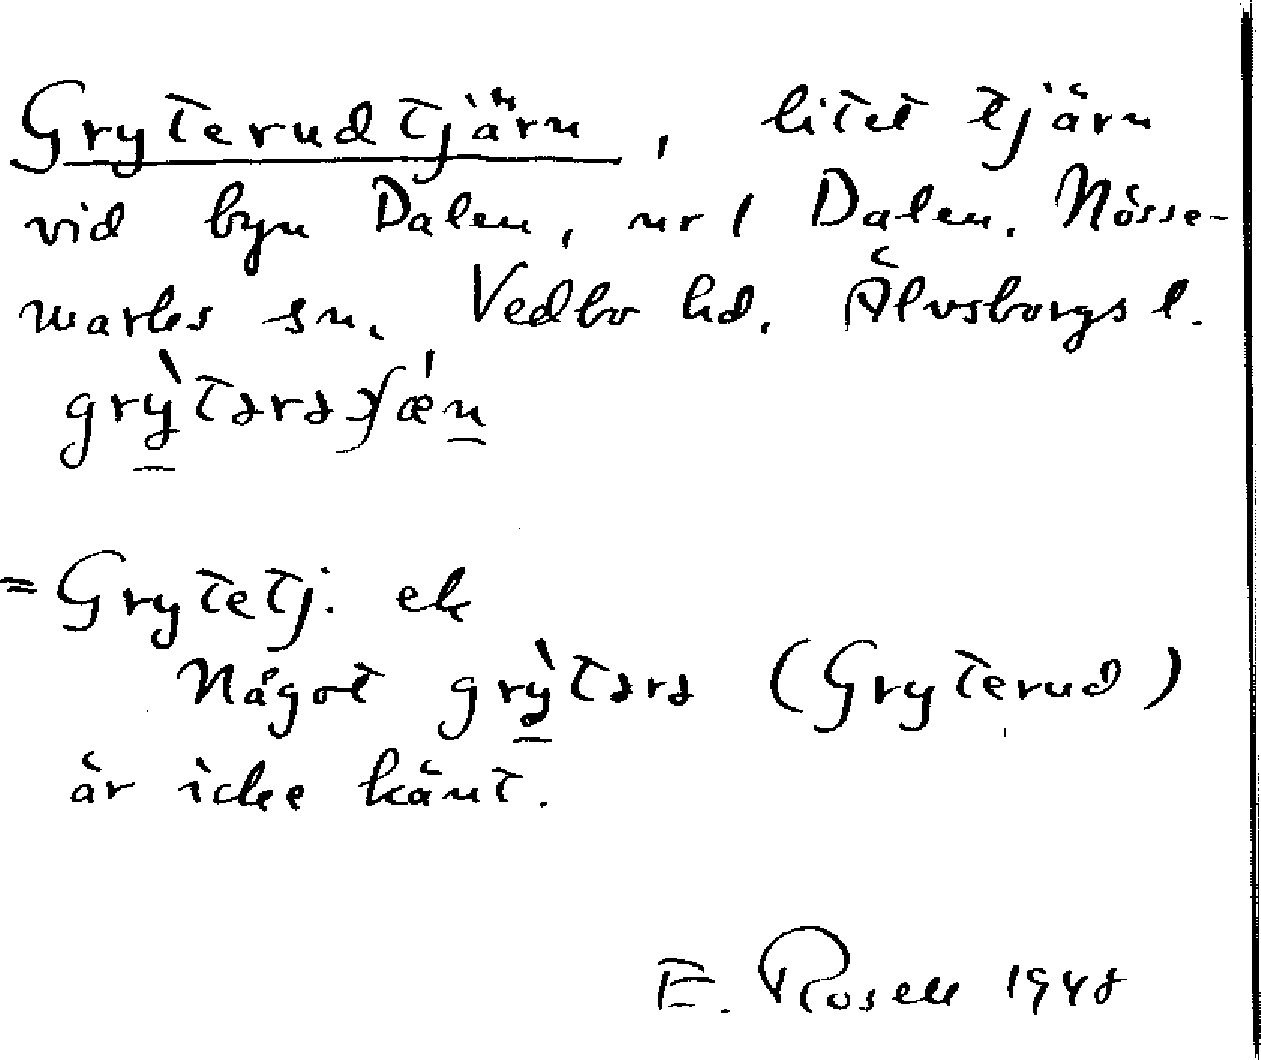 Gryterudtjärn, litet tjärn
vid byn Dalen, nr 1 Dalen. Nösse-
marks sn, Vedbo hd, Älvsborgs l.
grỳtərə
= Grytetj. ek
Något grỳtərə (Gryterud)
är icke känt.
E. Rosell 1948